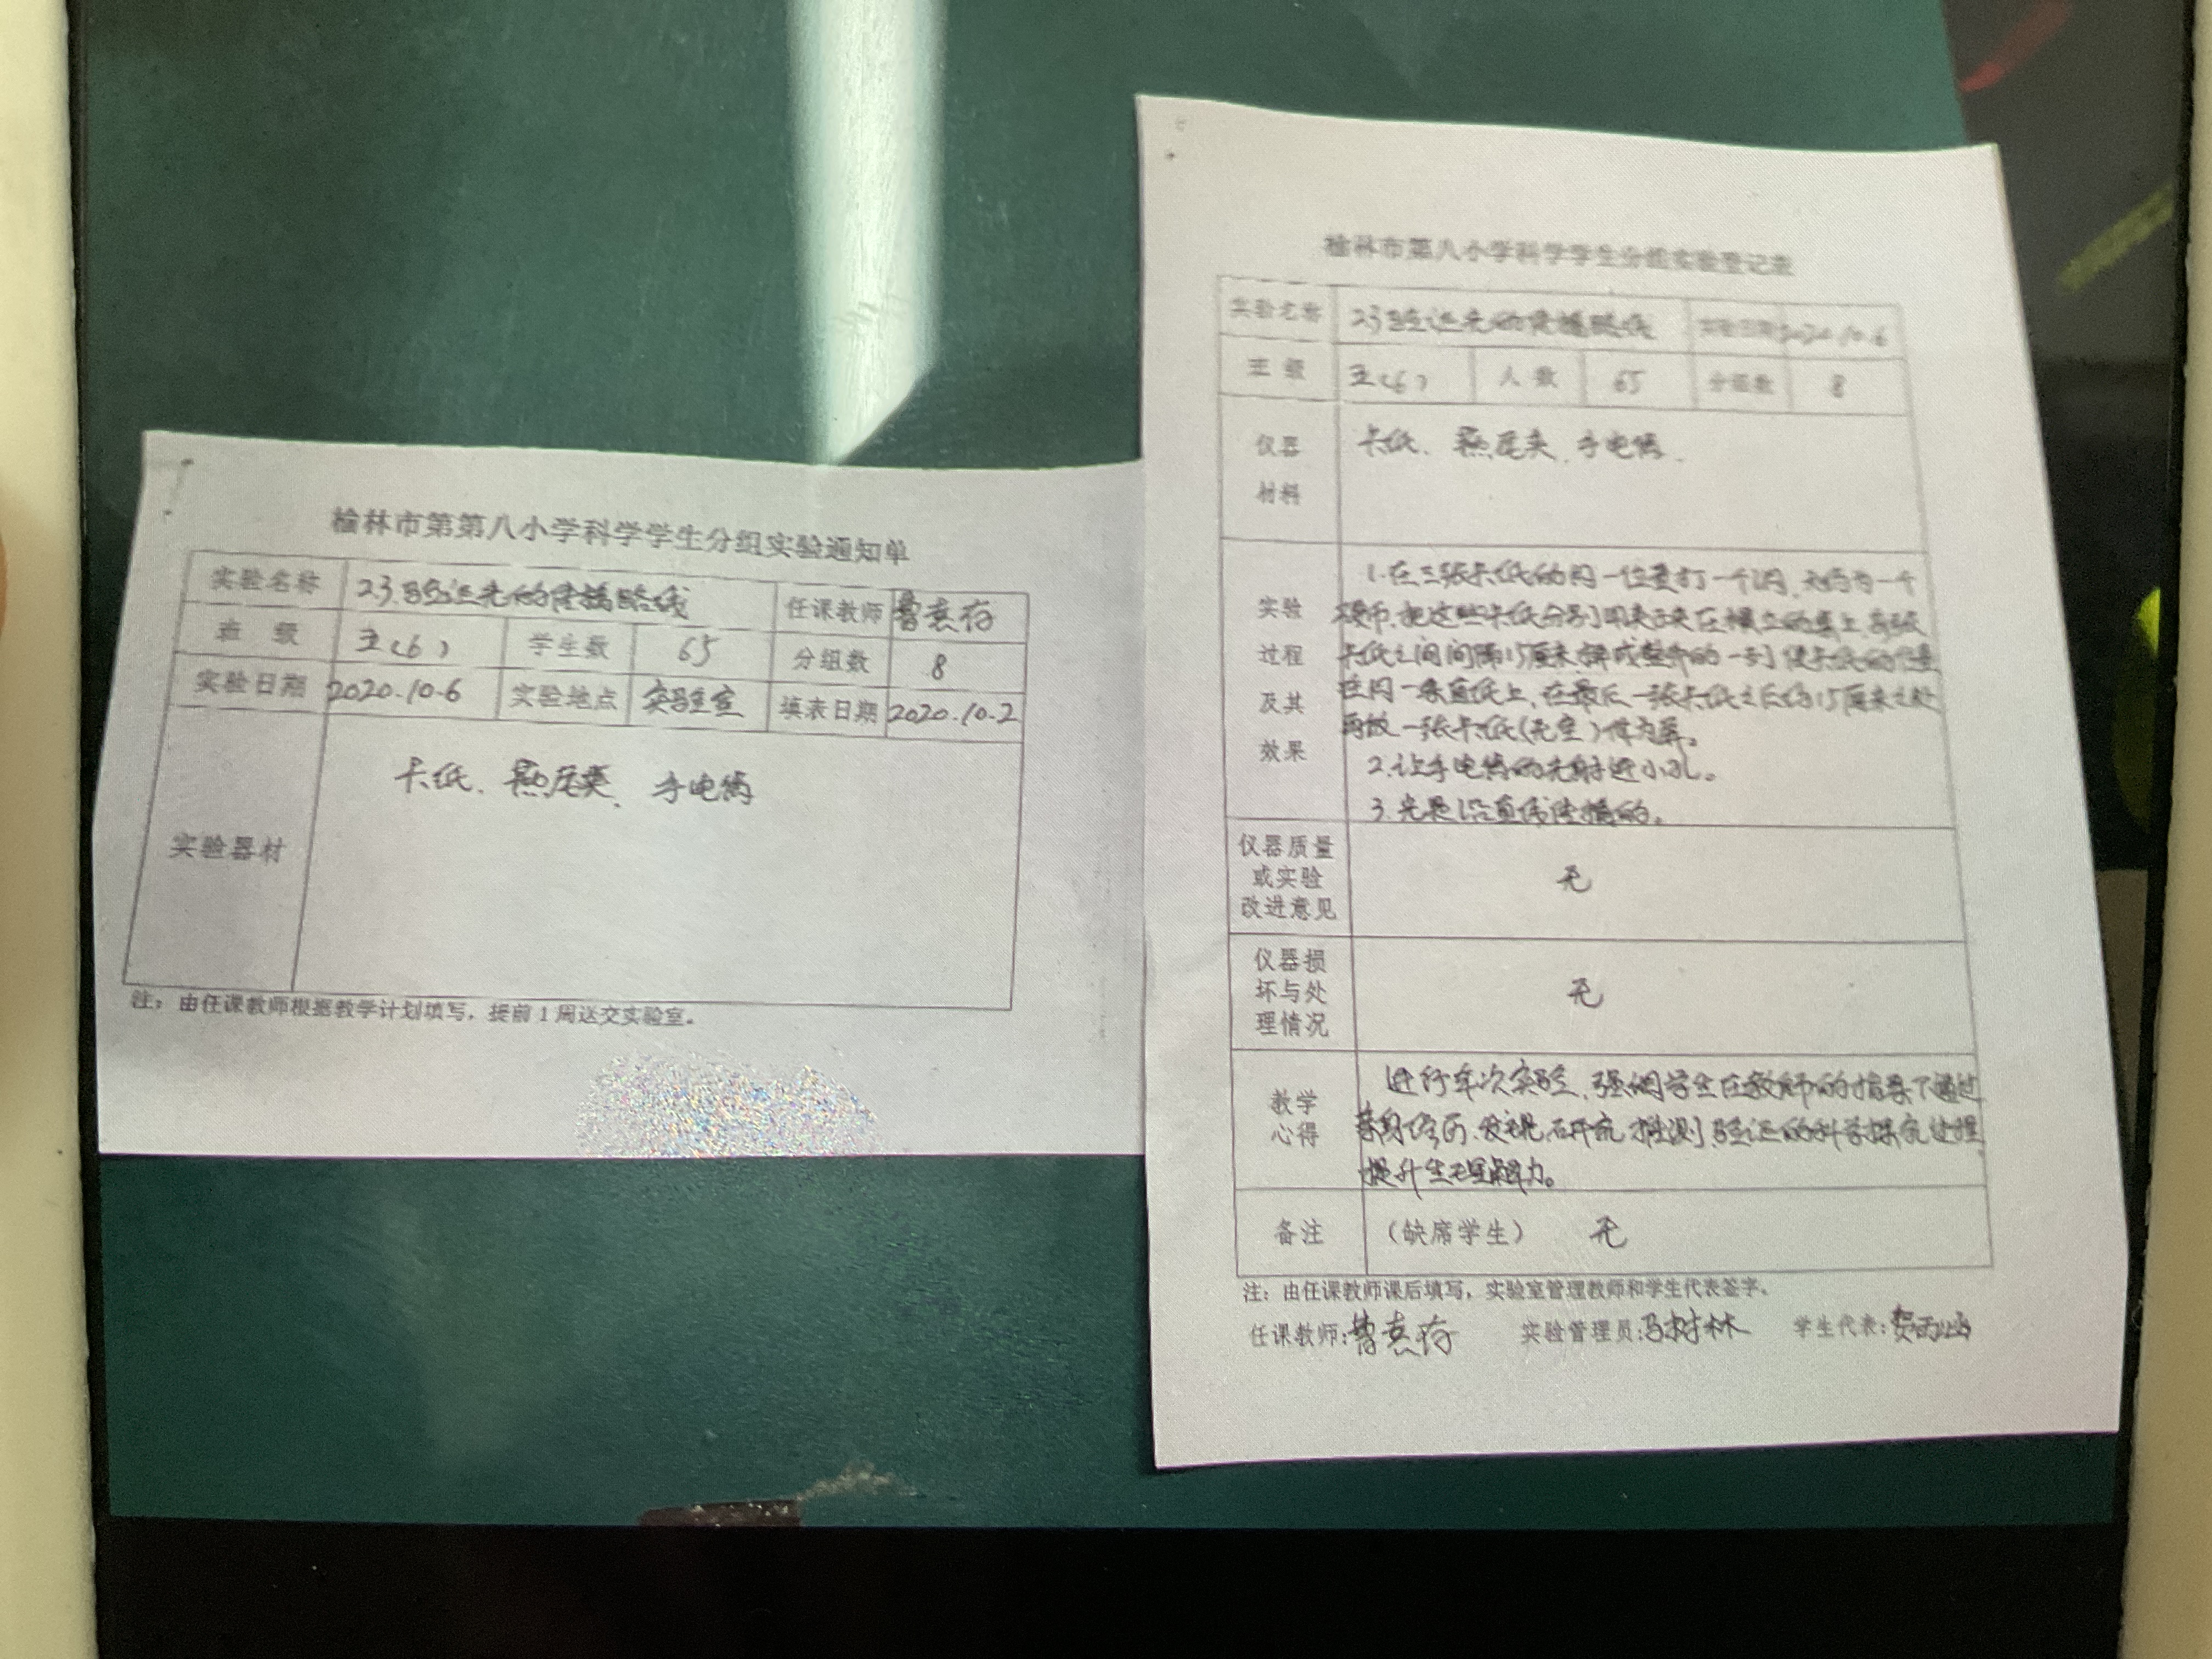 榆林市第第八小学科学学生分组实验通知单
实验名称 23.验证光的传播路线 任课教师 曹
班 级 五(6) 学生数 65 分组数 8
实验日期 2020.10.6 实验地点 实验室 填表日期 2020.10.2
实验器材 卡纸、燕尾夹、手电筒
注：由任课教师根据教学计划填写，提前1周送交实验室。
榆林市第八小学科学学生分组实验登记表
实验名称 23验证光的传播路线 实验日期 2020.10.6
班 级 五(6) 人 数 65 分组数 8
仪器材料 卡纸、燕尾夹、手电筒.
实验过程及其效果
1.在三张卡纸的同一位置打一个洞,
把这些卡纸分别用夹子夹在横立的桌上,每张
卡纸之间间隔15厘米,排成整齐的一列,使卡纸的位置
在同一条直线上,在最后一张卡纸之后约15厘米之处
再放一张卡纸(无空)作为屏。
2.让手电筒的光射进小孔。
3.光是沿直线传播的。
仪器质量或实验改进意见 无
仪器损坏与处理情况 无
教学心得
进行本次实验,强调学生在教师的指导下通过
亲身经历、发现、研究、推测、验证的科学探究过程
提升生理解力。
备注 （缺席学生） 无
注：由任课教师课后填写，实验室管理教师和学生代表签字。
任课教师: 曹 实验管理员:马树林 学生代表: